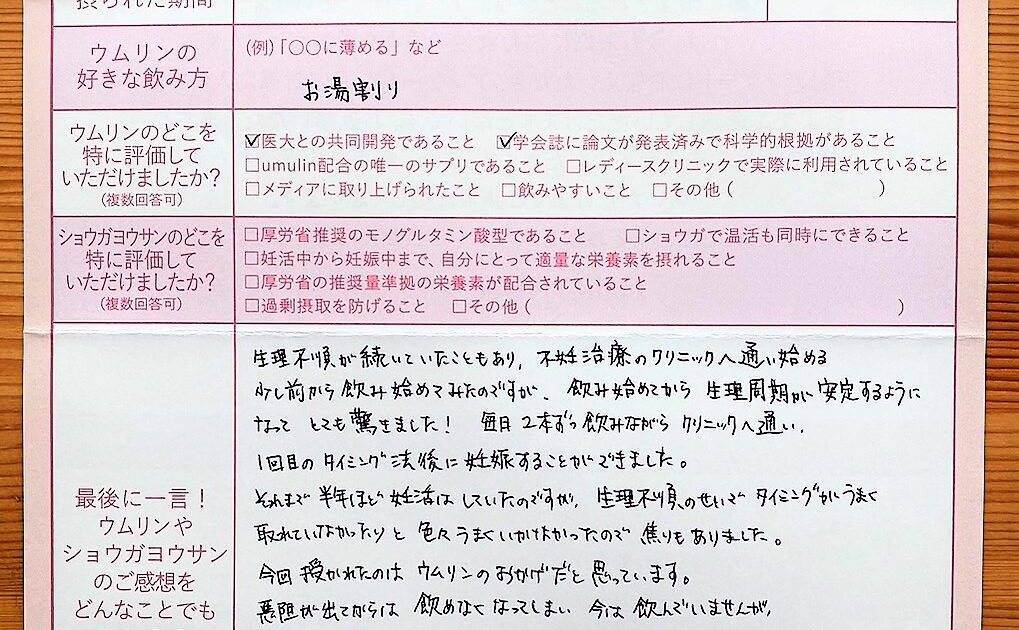 摂られた期間
ウムリンの
好きな飲み方
(例)「〇〇に薄める」など
お湯割り
ウムリンのどこを
特に評価して
いただけましたか?
(複数回答可)
☑医大との共同開発であること ☑学会誌に論文が発表済みで科学的根拠があること
□umulin配合の唯一のサプリであること □レディースクリニックで実際に利用されていること
□メディアに取り上げられたこと □飲みやすいこと □その他( )
ショウガヨウサンのどこを
特に評価して
いただけましたか?
(複数回答可)
□厚労省推奨のモノグルタミン酸型であること □ショウガで温活も同時にできること
□妊活中から妊娠中まで、自分にとって適量な栄養素を摂れること
□厚労省の推奨量準拠の栄養素が配合されていること
□過剰摂取を防げること □その他( )
最後に一言!
ウムリンや
ショウガヨウサン
のご感想を
どんなことでも
生理不順が続いていたこともあり、不妊治療のクリニックへ通い始める
少し前から飲み始めてみたのですが、飲み始めてから生理周期が安定するように
なってとても驚きました! 毎日2本ずつ飲みながらクリニックへ通い、
1回目のタイミング法後に妊娠することができました。
それまで半年ほど妊活はしていたのですが、生理不順のせいでタイミングがうまく
取れていなかったりと色々うまくいかなかったので焦りもありました。
今回授かれたのはウムリンのおかげだと思っています。
悪阻が出てからは飲めなくなってしまい今は飲んでいませんが、